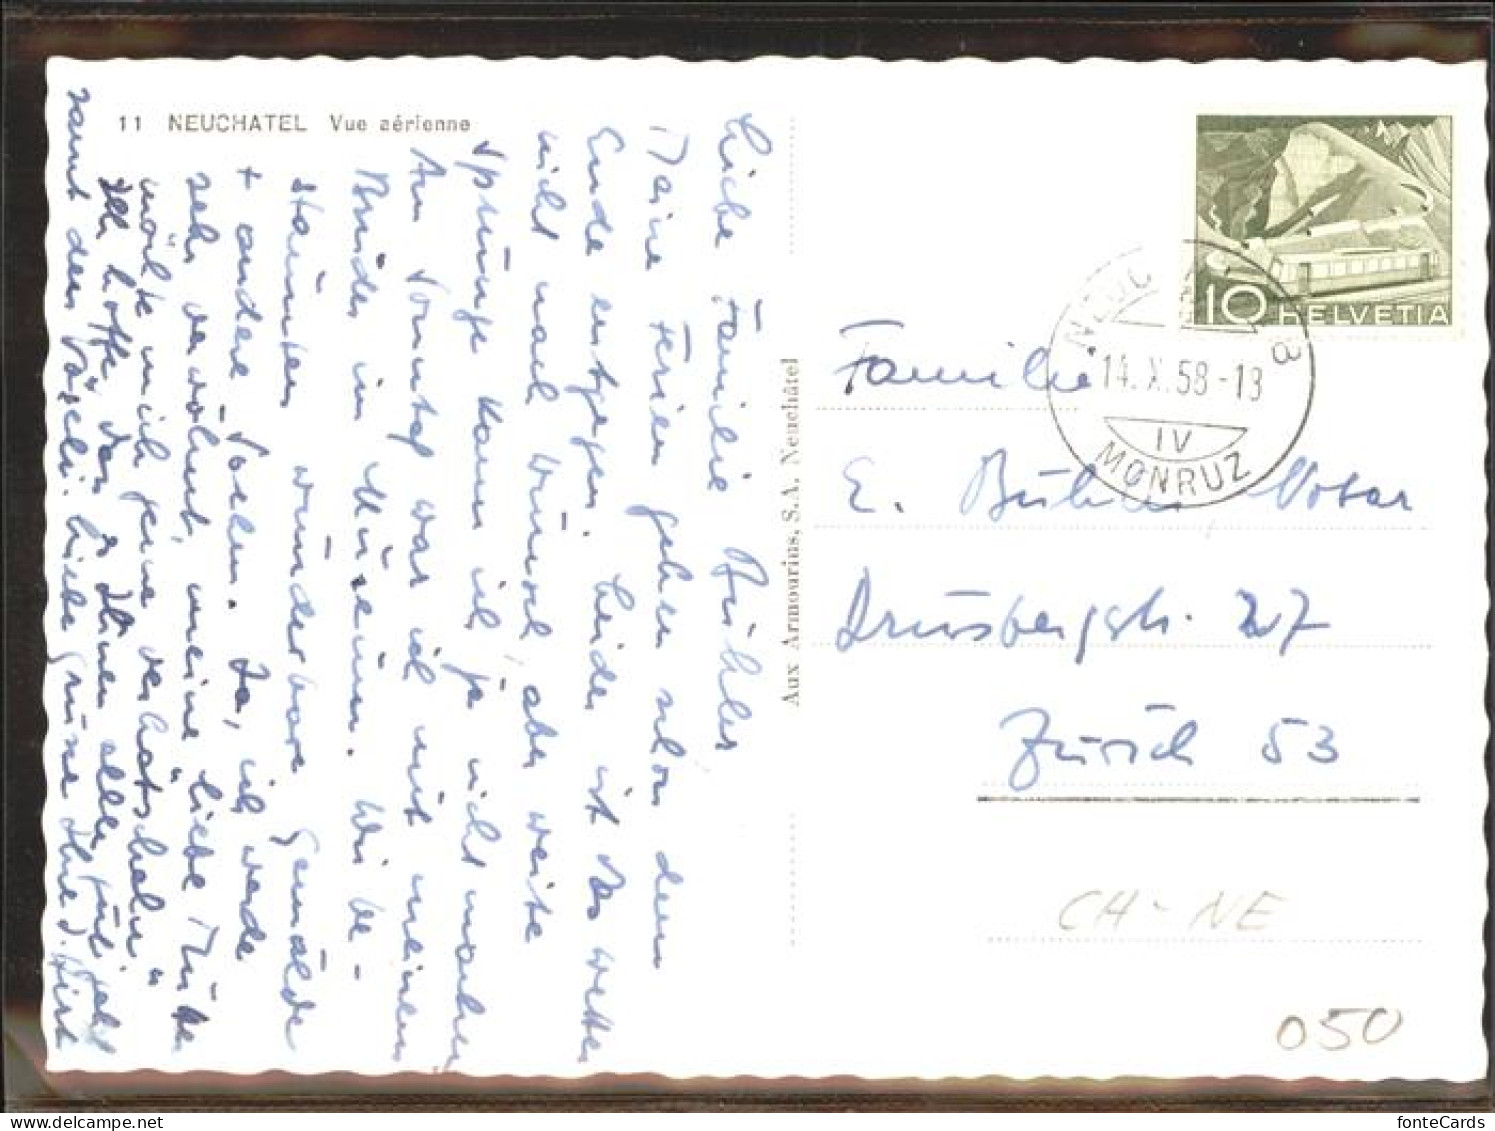 11 NEUCHATEL Vue aérienne
Liebe Familie Bühler
Meine Ferien gehen schon dem
Ende entgegen. Leider ist das Wetter
nicht nach Wunsch, aber weite
Sprünge kann ich ja nicht machen
Am Vormittag war ich mit meinem
Bruder im Museum. Wir be-
staunten wunderbare Gemälde
+ andere Sachen. Ja, ich werde
sehr verwöhnt, meine liebe
möchte mich gerne verhätscheln"
Ich hoffe, dass es Ihnen allen gut geht
samt dem Vögeli. Liebe Grüsse Ihre
Aux Armourins, S.A. Neuchâtel
10 HELVETIA
NEUC
14.X.58-18
IV
MONRUZ
Familie
E. Bühler, Notar
Drusbergstr. 27
Zürich 53
CH-NE
050
fonteCards